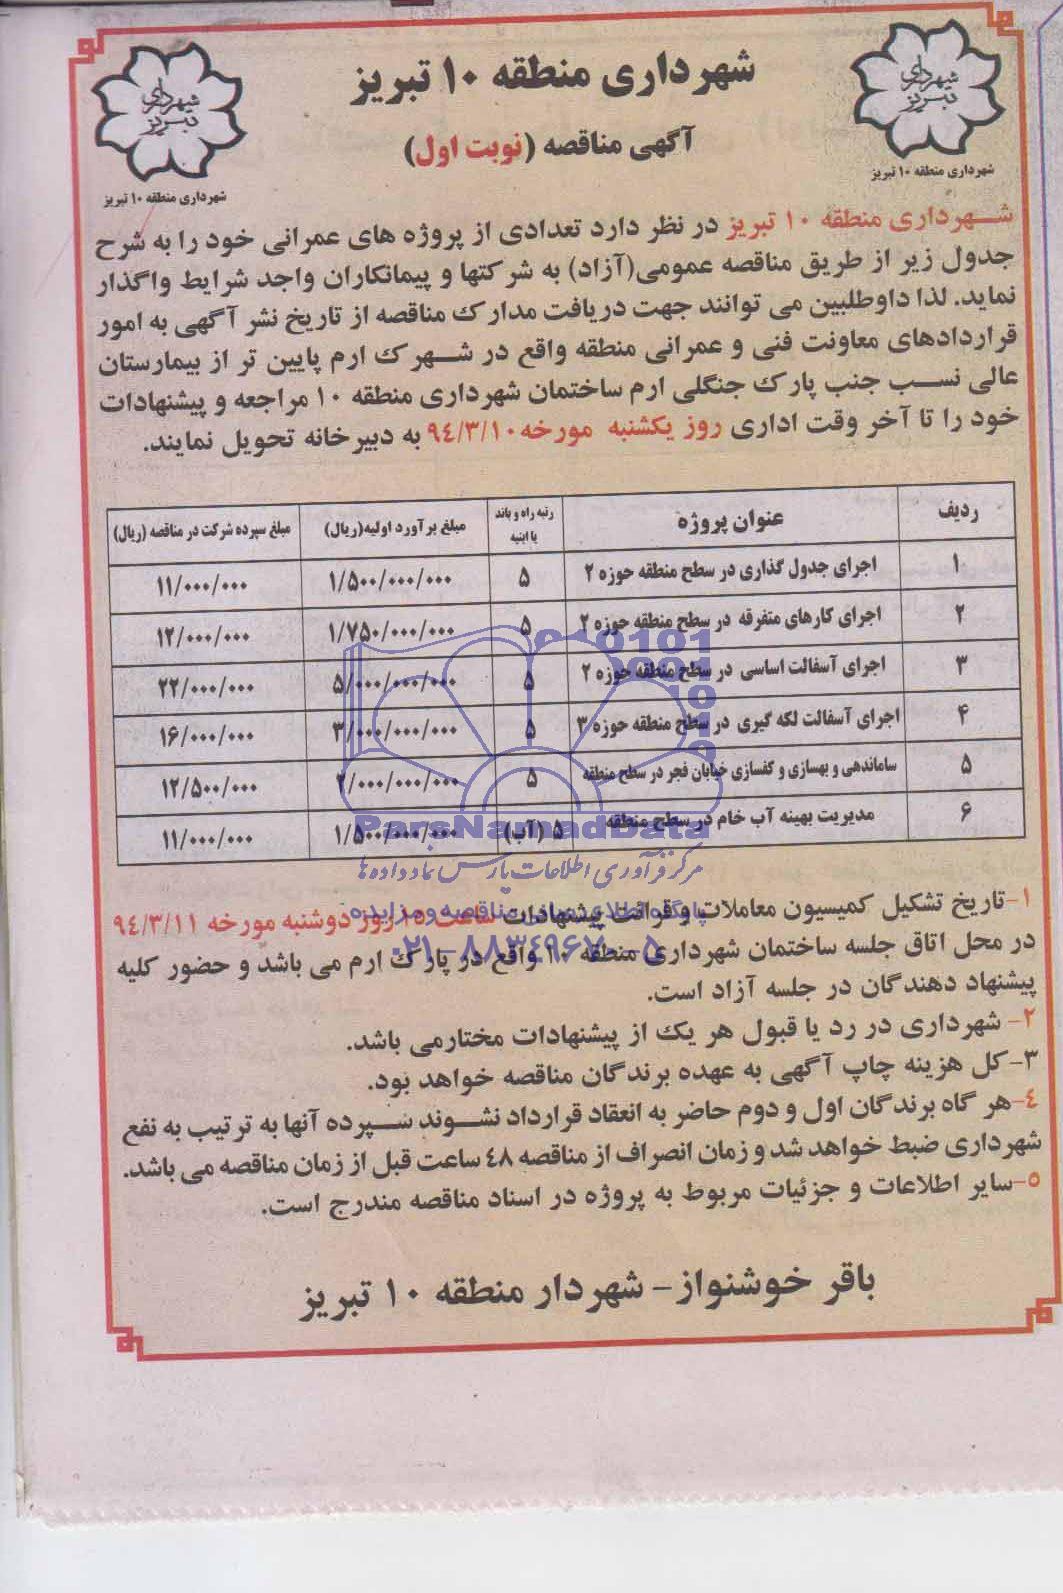 شهرداری منطقه ۱۰ تبریز
آگهی مناقصه (نوبت اول)
شهرداری تبریز
شهرداری منطقه ۱۰ تبریز
شهرداری تبریز
شهرداری منطقه ۱۰ تبریز
شهرداری منطقه ۱۰ تبریز در نظر دارد تعدادی از پروژه های عمرانی خود را به شرح
جدول زیر از طریق مناقصه عمومی(آزاد) به شرکتها و پیمانکاران واجد شرایط واگذار
نماید. لذا داوطلبین می توانند جهت دریافت مدارک مناقصه از تاریخ نشر آگهی به امور
قراردادهای معاونت فنی و عمرانی منطقه واقع در شهرک ارم پایین تر از بیمارستان
عالی نسب جنب پارک جنگلی ارم ساختمان شهرداری منطقه ۱۰ مراجعه و پیشنهادات
خود را تا آخر وقت اداری روز یکشنبه مورخه ۹۴/۳/۱۰ به دبیرخانه تحویل نمایند.
ردیف عنوان پروژه رتبه راه و باند یا ابنیه مبلغ برآورد اولیه(ریال) مبلغ سپرده شرکت در مناقصه (ریال)
۱ اجرای جدول گذاری در سطح منطقه حوزه ۲ ۵ ۱/۵۰۰/۰۰۰/۰۰۰ ۱۱/۰۰۰/۰۰۰
۲ اجرای کارهای متفرقه در سطح منطقه حوزه ۲ ۵ ۱/۷۵۰/۰۰۰/۰۰۰ ۱۲/۰۰۰/۰۰۰
۳ اجرای آسفالت اساسی در سطح منطقه حوزه ۲ ۵ ۵/۰۰۰/۰۰۰/۰۰۰ ۲۲/۰۰۰/۰۰۰
۴ اجرای آسفالت لکه گیری در سطح منطقه حوزه ۳ ۵ ۳/۰۰۰/۰۰۰/۰۰۰ ۱۶/۰۰۰/۰۰۰
۵ ساماندهی و بهسازی و کفسازی خیابان فجر در سطح منطقه ۵ ۲/۰۰۰/۰۰۰/۰۰۰ ۱۲/۵۰۰/۰۰۰
۶ مدیریت بهینه آب خام در سطح منطقه ۵ (آب) ۱/۵۰۰/۰۰۰/۰۰۰ ۱۱/۰۰۰/۰۰۰
ParsNamadData
مرکز فرآوری اطلاعات پارس نماد داده ها
۰۲۱-۸۸۳۴۹۶۷۰-۵
۱-تاریخ تشکیل کمیسیون معاملات و قرائت پیشنهادات ساعت ۱۵ روز دوشنبه مورخه ۹۴/۳/۱۱
در محل اتاق جلسه ساختمان شهرداری منطقه ۱۰ واقع در پارک ارم می باشد و حضور کلیه
پیشنهاد دهندگان در جلسه آزاد است.
۲- شهرداری در رد یا قبول هر یک از پیشنهادات مختارمی باشد.
۳-کل هزینه چاپ آگهی به عهده برندگان مناقصه خواهد بود.
۴-هر گاه برندگان اول و دوم حاضر به انعقاد قرارداد نشوند سپرده آنها به ترتیب به نفع
شهرداری ضبط خواهد شد و زمان انصراف از مناقصه ۴۸ ساعت قبل از زمان مناقصه می باشد.
۵-سایر اطلاعات و جزئیات مربوط به پروژه در اسناد مناقصه مندرج است.
باقر خوشنواز - شهردار منطقه ۱۰ تبریز